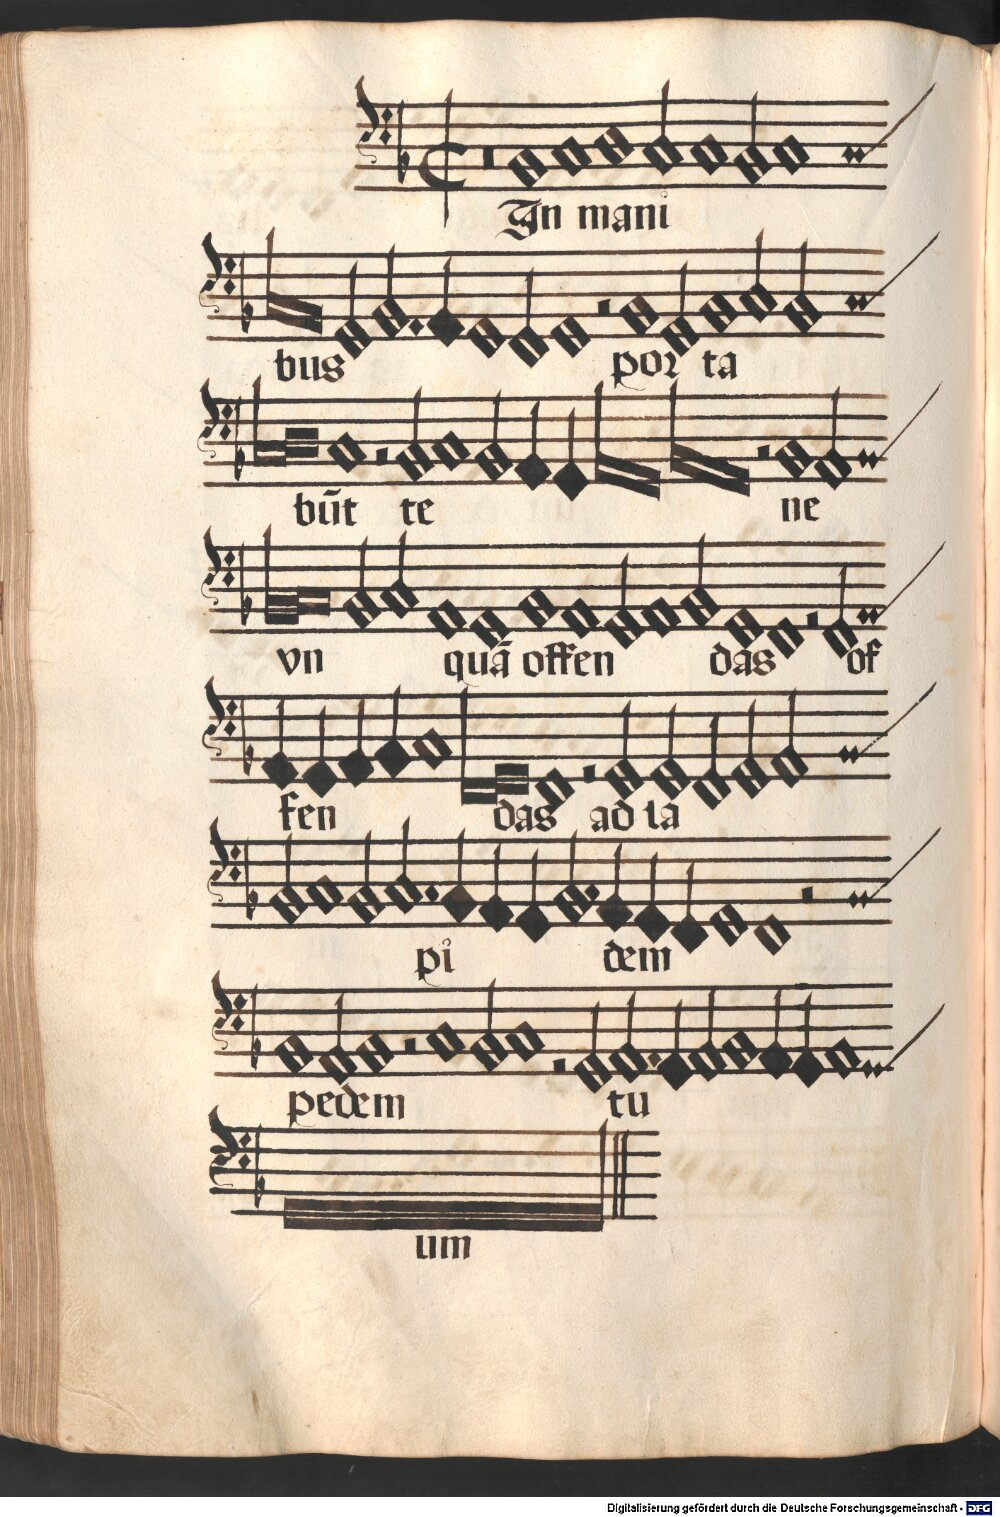 In mani
bus por ta
būt te ne
vn quā offen das of
fen das ad la
pi dem
pedem tu
um
Digitalisierung gefördert durch die Deutsche Forschungsgemeinschaft - DFG